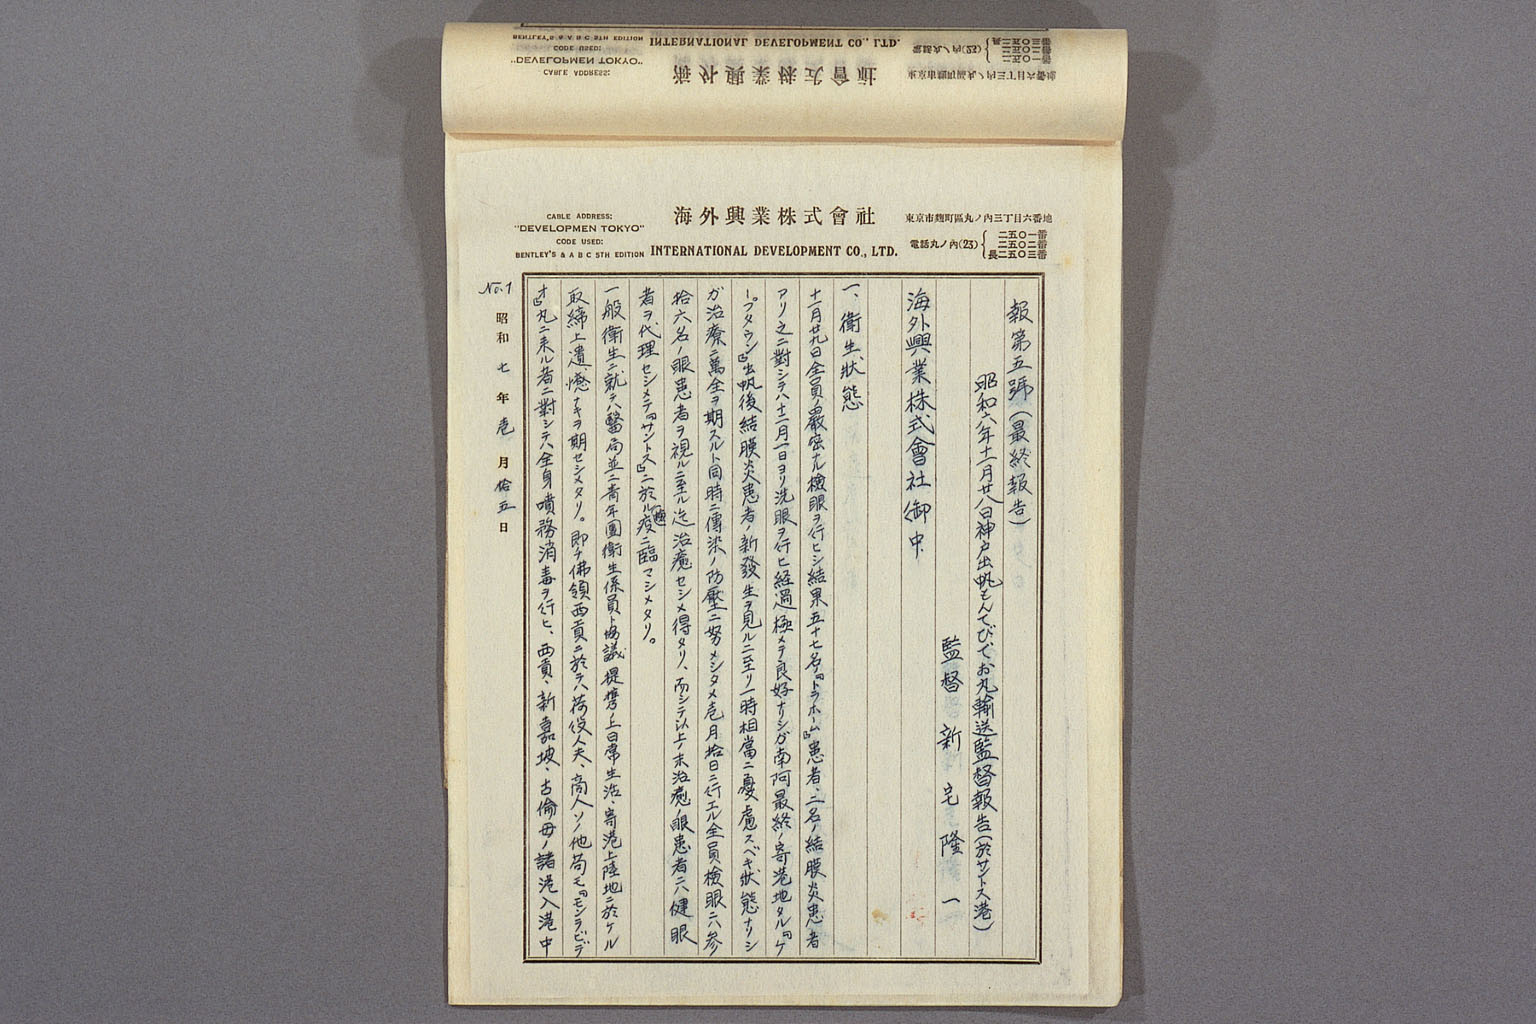 海外興業株式會社
INTERNATIONAL DEVELOPMENT CO., LTD.
CABLE ADDRESS:
"DEVELOPMEN TOKYO"
CODE USED:
BENTLEY'S & A B C 5TH EDITION
東京市麹町區丸ノ內三丁目六番地
電話丸ノ內(23)
二五〇一番
二五〇二番
長二五〇三番
CABLE ADDRESS:
"DEVELOPMEN TOKYO"
CODE USED:
BENTLEY'S & A B C 5TH EDITION
海外興業株式會社
INTERNATIONAL DEVELOPMENT CO., LTD.
東京市麹町區丸ノ內三丁目六番地
電話丸ノ內(23)
二五〇一番
二五〇二番
長二五〇三番
報第五號(最終報告)
昭和六年十一月廿八日神戸出帆もんてびでお丸輸送監督報告(於サントス港)
監督 新宅隆一
海外興業株式會社御中
一、衛生狀態
十一月廿九日全員ノ嚴密ナル檢眼ヲ行ヒシ結果五十七名ノ『トラホーム』患者、二名ノ結膜炎患者
アリ之ニ對シテハ十二月一日ヨリ洗眼ヲ行ヒ経過極メテ良好ナリシガ南阿最終ノ寄港地タル『ケ
ープタウン』出帆後結膜炎患者ノ新發生ヲ見ルニ至リ一時相當ニ憂慮スベキ狀態ナリシ
ガ治療ニ萬全ヲ期スルト同時ニ傳染ノ防壓ニ努メシタメ壱月拾日ニ行エル全員檢眼ニハ参
拾六名ノ眼患者ヲ視ルニ至ル迄治癒セシメ得タリ、而シテ以上ノ未治癒ノ眼患者ニハ健眼
者ヲ代理セシメテ『サントス』ニ於ル檢疫ニ臨マシメタリ。
一般衛生ニ就テハ醫局並ニ青年團衛生係員ト協議提携ノ上日常生活、寄港上陸地ニ於ケル
取締上遺憾ナキヲ期セシメタリ。即チ佛領西貢ニ於テハ荷役人夫、商人ソノ他苟モ『モンテビデ
オ』丸ニ来ル者ニ對シテハ全身噴務消毒ヲ行ヒ、西貢、新嘉坡、古倫母ノ諸港入港中
No.1
昭和七年壱月拾五日